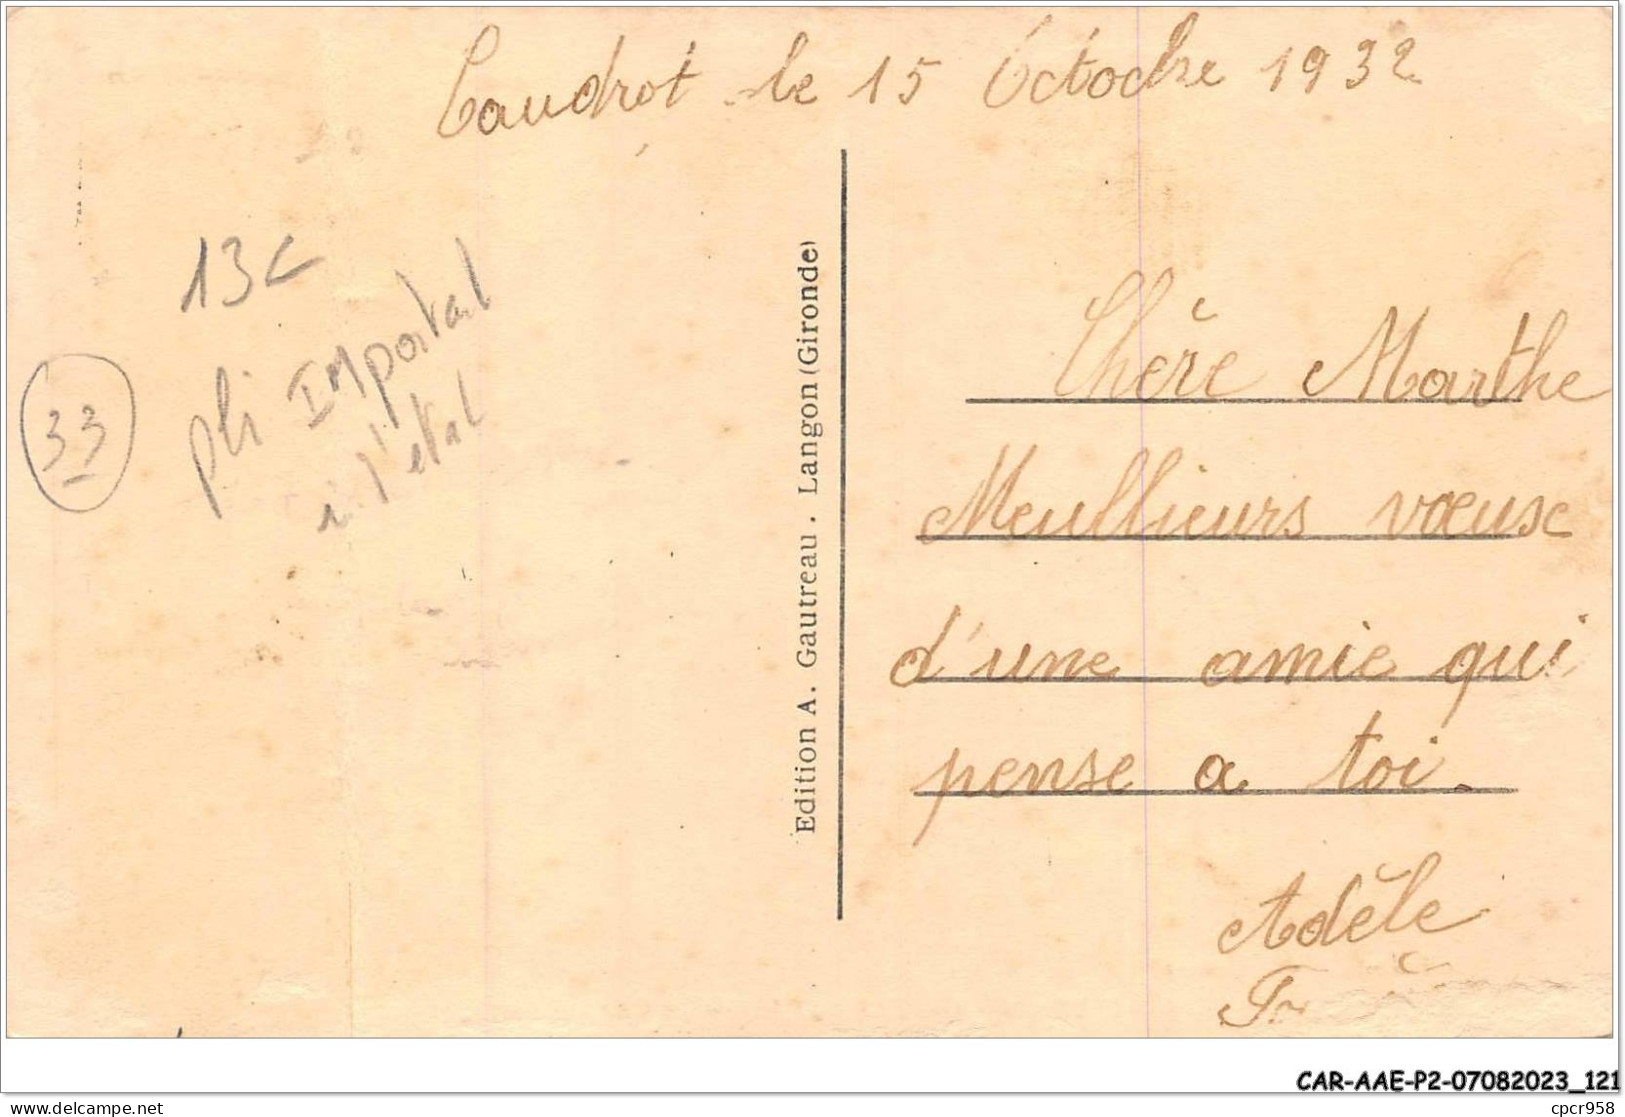 Caudrot le 15 Octobre 1932
13c
33
pli Important
l'etat
Edition A. Gautreau. Langon (Gironde)
Chère Marthe
Meullieurs vœuse
d'une amie qui
pense a toi.
Adèle
CAR-AAE-P2-07082023_121
delcampe.net
cpcr958